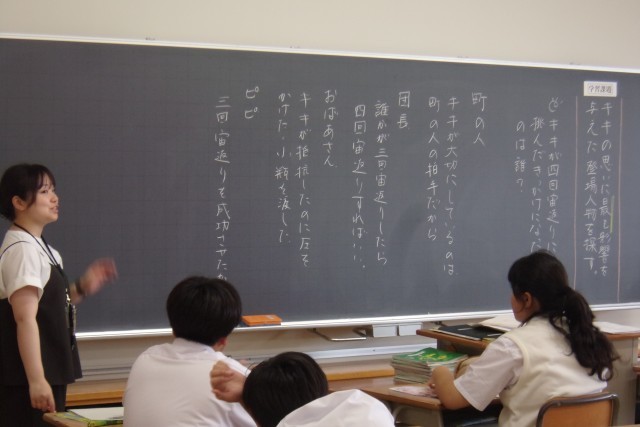 学習課題
キキの思いに最も影響を
与えた登場人物を探す。
キキが四回宙返りに
挑んだきっかけになった
のは誰？
町の人
キキが大切にしているのは
町の人の拍手だから
団長
誰かが三回宙返りしたら
四回宙返りすればいい。
おばあさん
キキが抵抗したのに圧を
かけた。小瓶を渡した
ピピ
三回宙返りを成功させたか